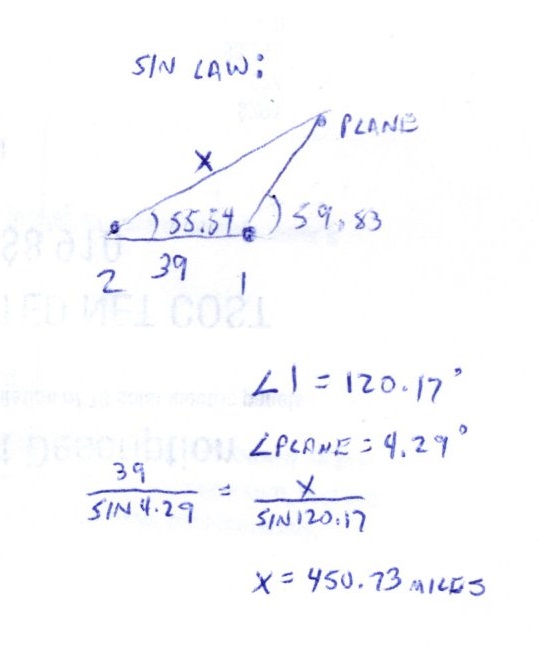 SIN LAW:
PLANE
X
55.54
59.83
39
2
1
∠1 = 120.17°
∠PLANE = 4.29°
39 / SIN 4.29 = X / SIN 120.17
X = 450.73 MILES